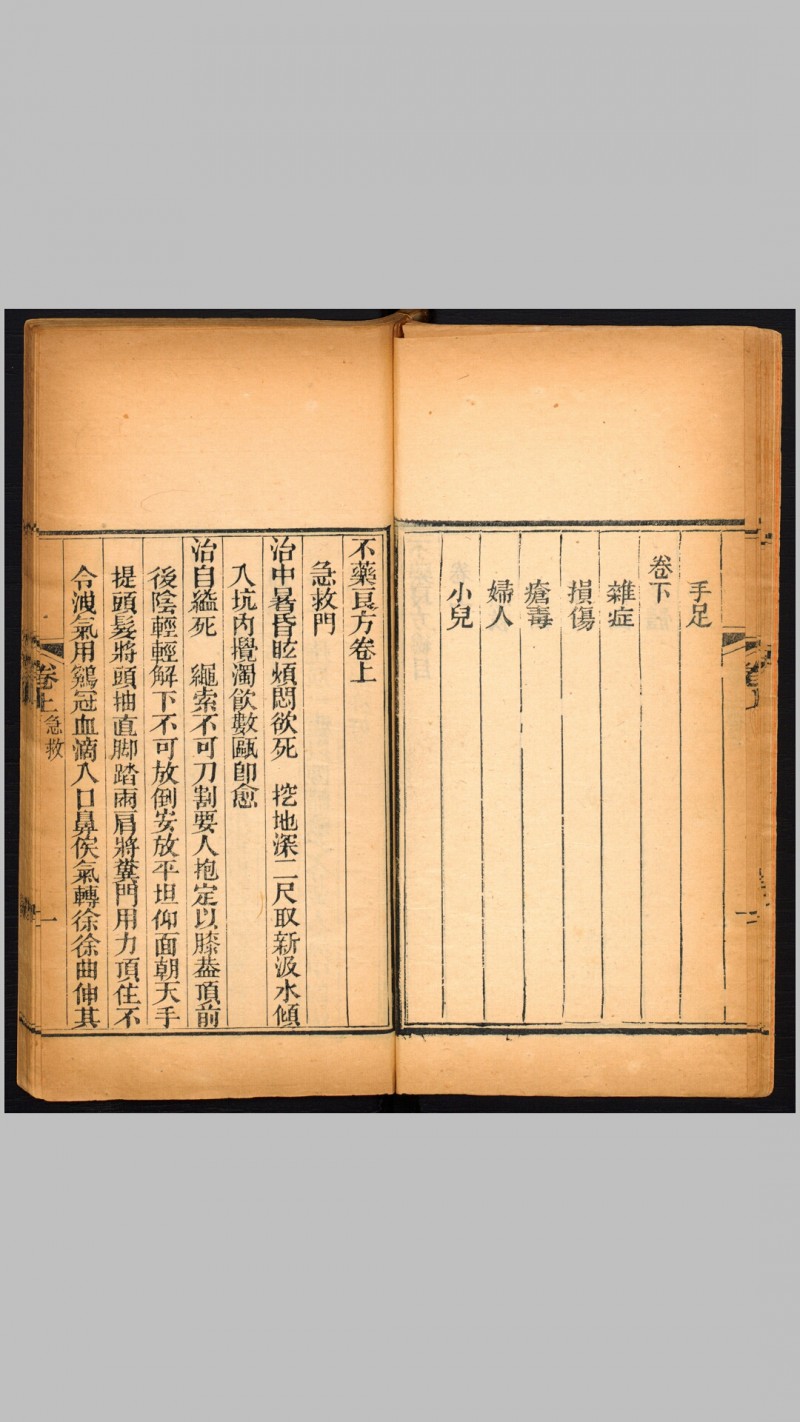 手足
卷下
雜症
損傷
瘡毒
婦人
小兒
不藥良方卷上
急救門
治中暑昏眩煩悶欲死　挖地深二尺取新汲水傾
入坑內攪濁飲數甌即愈
治自縊死　繩索不可刀割要人抱定以膝葢頂前
後陰輕輕解下不可放倒安放平坦仰面朝天手
提頭髮將頭抽直脚踏兩肩將糞門用力頂住不
令洩氣用鷄冠血滴入口鼻俟氣轉徐徐曲伸其
卷上
急救
一